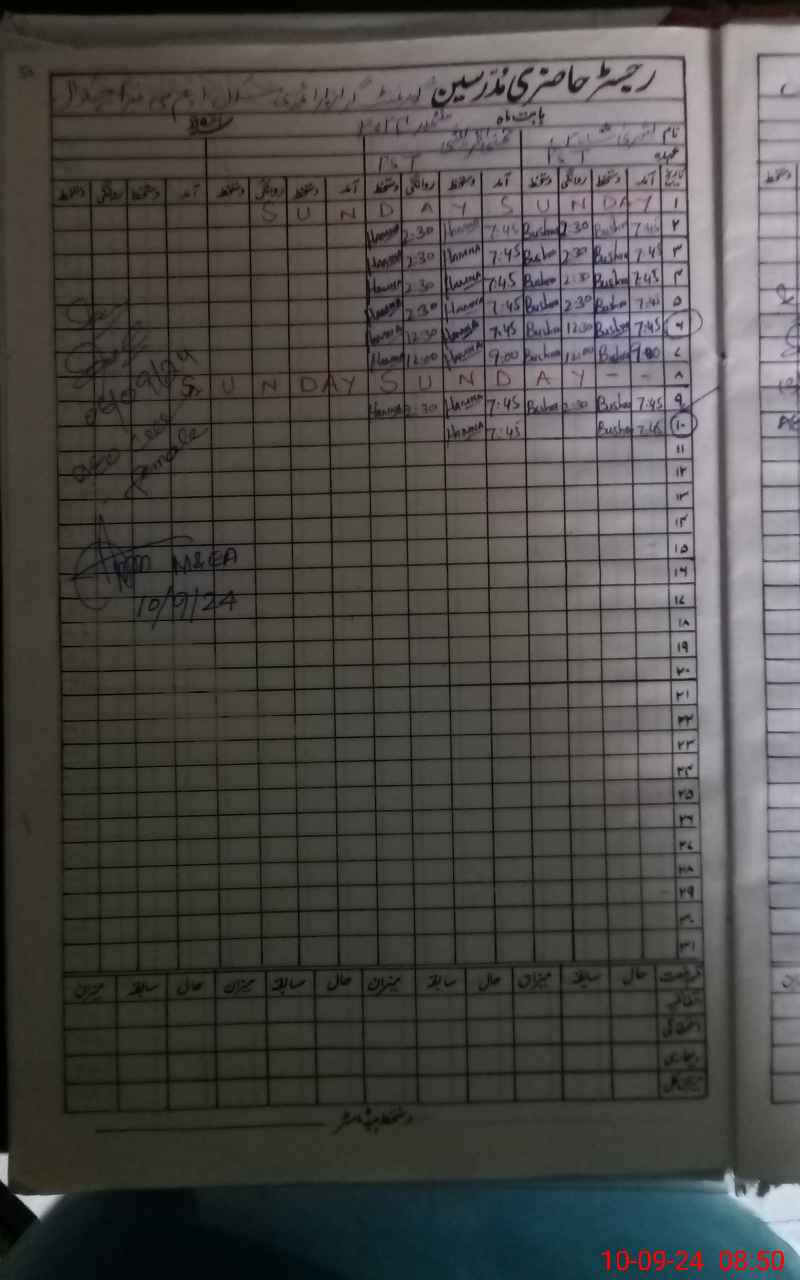 رجسٹر حاضری مدرسین گورنمنٹ گرلز پرائمری سکول
بابت ماہ ستمبر ۲۰۲۴
نام
عہدہ PST PST
تاریخ آمد دستخط روانگی دستخط آمد دستخط روانگی دستخط آمد دستخط روانگی دستخط آمد دستخط روانگی دستخط
۱ S U N D A Y S U N D A Y
۲ 7:45 Bushra 2:30 Bushra 7:45 Hamna 2:30 Hamna
۳ 7:45 Bushra 2:30 Bushra 7:45 Hamna 2:30 Hamna
۴ 7:45 Bushra 2:30 Bushra 7:45 Hamna 2:30 Hamna
۵ 7:45 Bushra 2:30 Bushra 7:45 Hamna 2:30 Hamna
۶ 7:45 Bushra 12:30 Bushra 7:45 Hamna 12:30 Hamna
۷ 9:00 Bushra 12:00 Bushra 9:00 Hamna 12:00 Hamna
۸ S U N D A Y S U N D A Y - -
۹ 7:45 Bushra 2:30 Bushra 7:45 Hamna 2:30 Hamna
۱۰ 7:45 Bushra 7:45 Hamna
۱۱
۱۲
۱۳
۱۴
۱۵
۱۶
۱۷
۱۸
۱۹
۲۰
۲۱
۲۲
۲۳
۲۴
۲۵
۲۶
۲۷
۲۸
۲۹
۳۰
۳۱
female
M&EA
10/9/24
رخصت حال سابقہ میزان حال سابقہ میزان حال سابقہ میزان حال سابقہ میزان
اتفاقیہ
استحقاقی
بیماری
میزان کل
دستخط ہیڈ ماسٹر
10-09-24 08:50